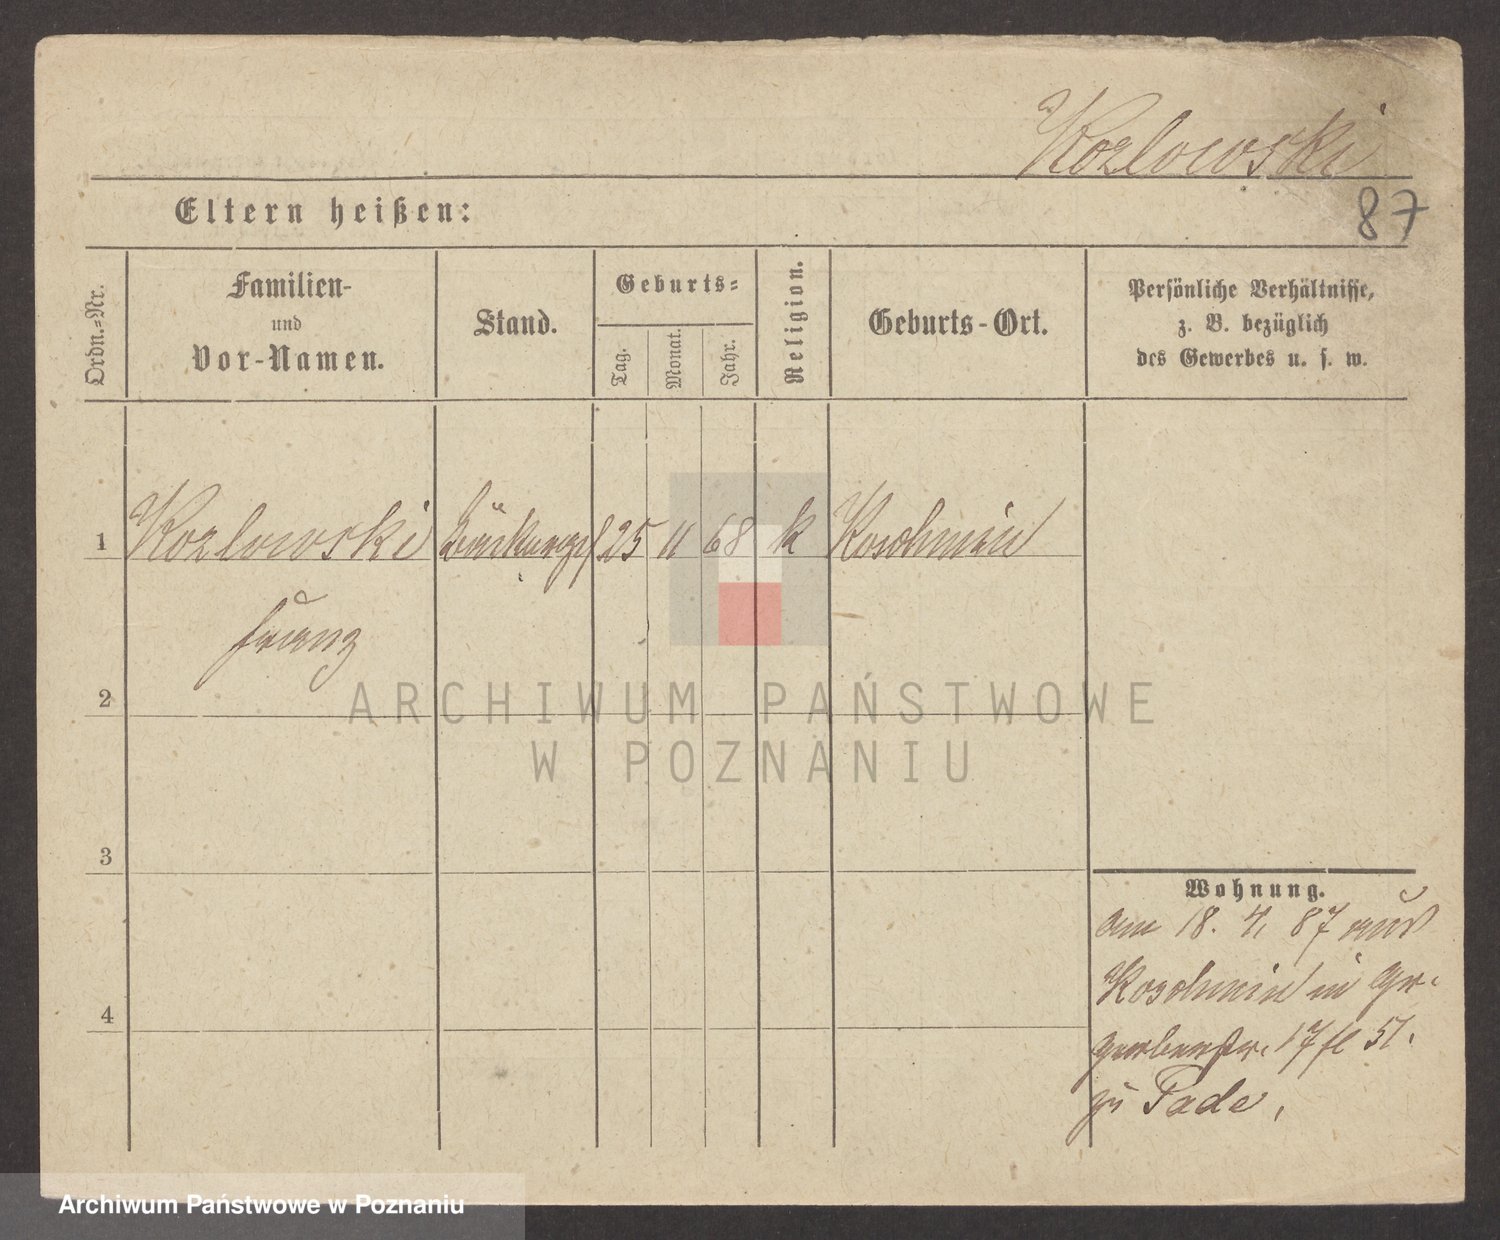 Kozlowski
87
Eltern heißen:
Ordn.=Nr.
Familien-
und
Vor-Namen.
Stand.
Geburts=
Tag.
Monat.
Jahr.
Religion.
Geburts-Ort.
Persönliche Verhältnisse,
z. B. bezüglich
des Gewerbes u. s. w.
1 Kozlowski 25 11 68 k Koschmin
Franz
2
ARCHIWUM PAŃSTWOWE
W POZNANIU
3
Wohnung.
am 18. 4. 87 aus
Koschmin in Gr.
4
gerberstr. 17
zu Pade,
Archiwum Państwowe w Poznaniu